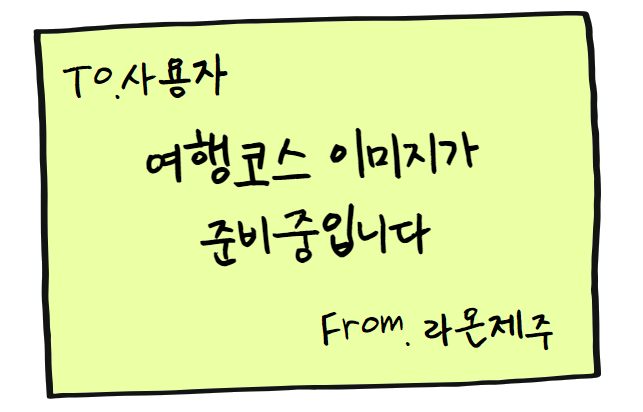 TO.사용자
여행코스 이미지가
준비중입니다
From. 라온제주